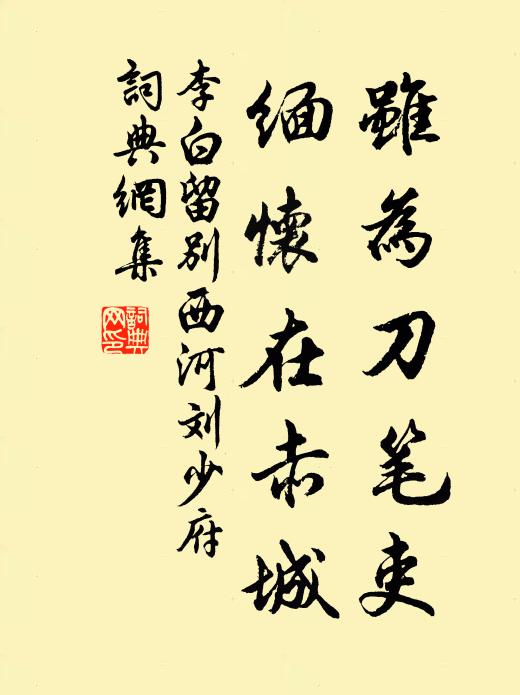 雖為刀笔吏
緬懷在赤城
李白留别西河刘少府
詞典網集
詞典
网印